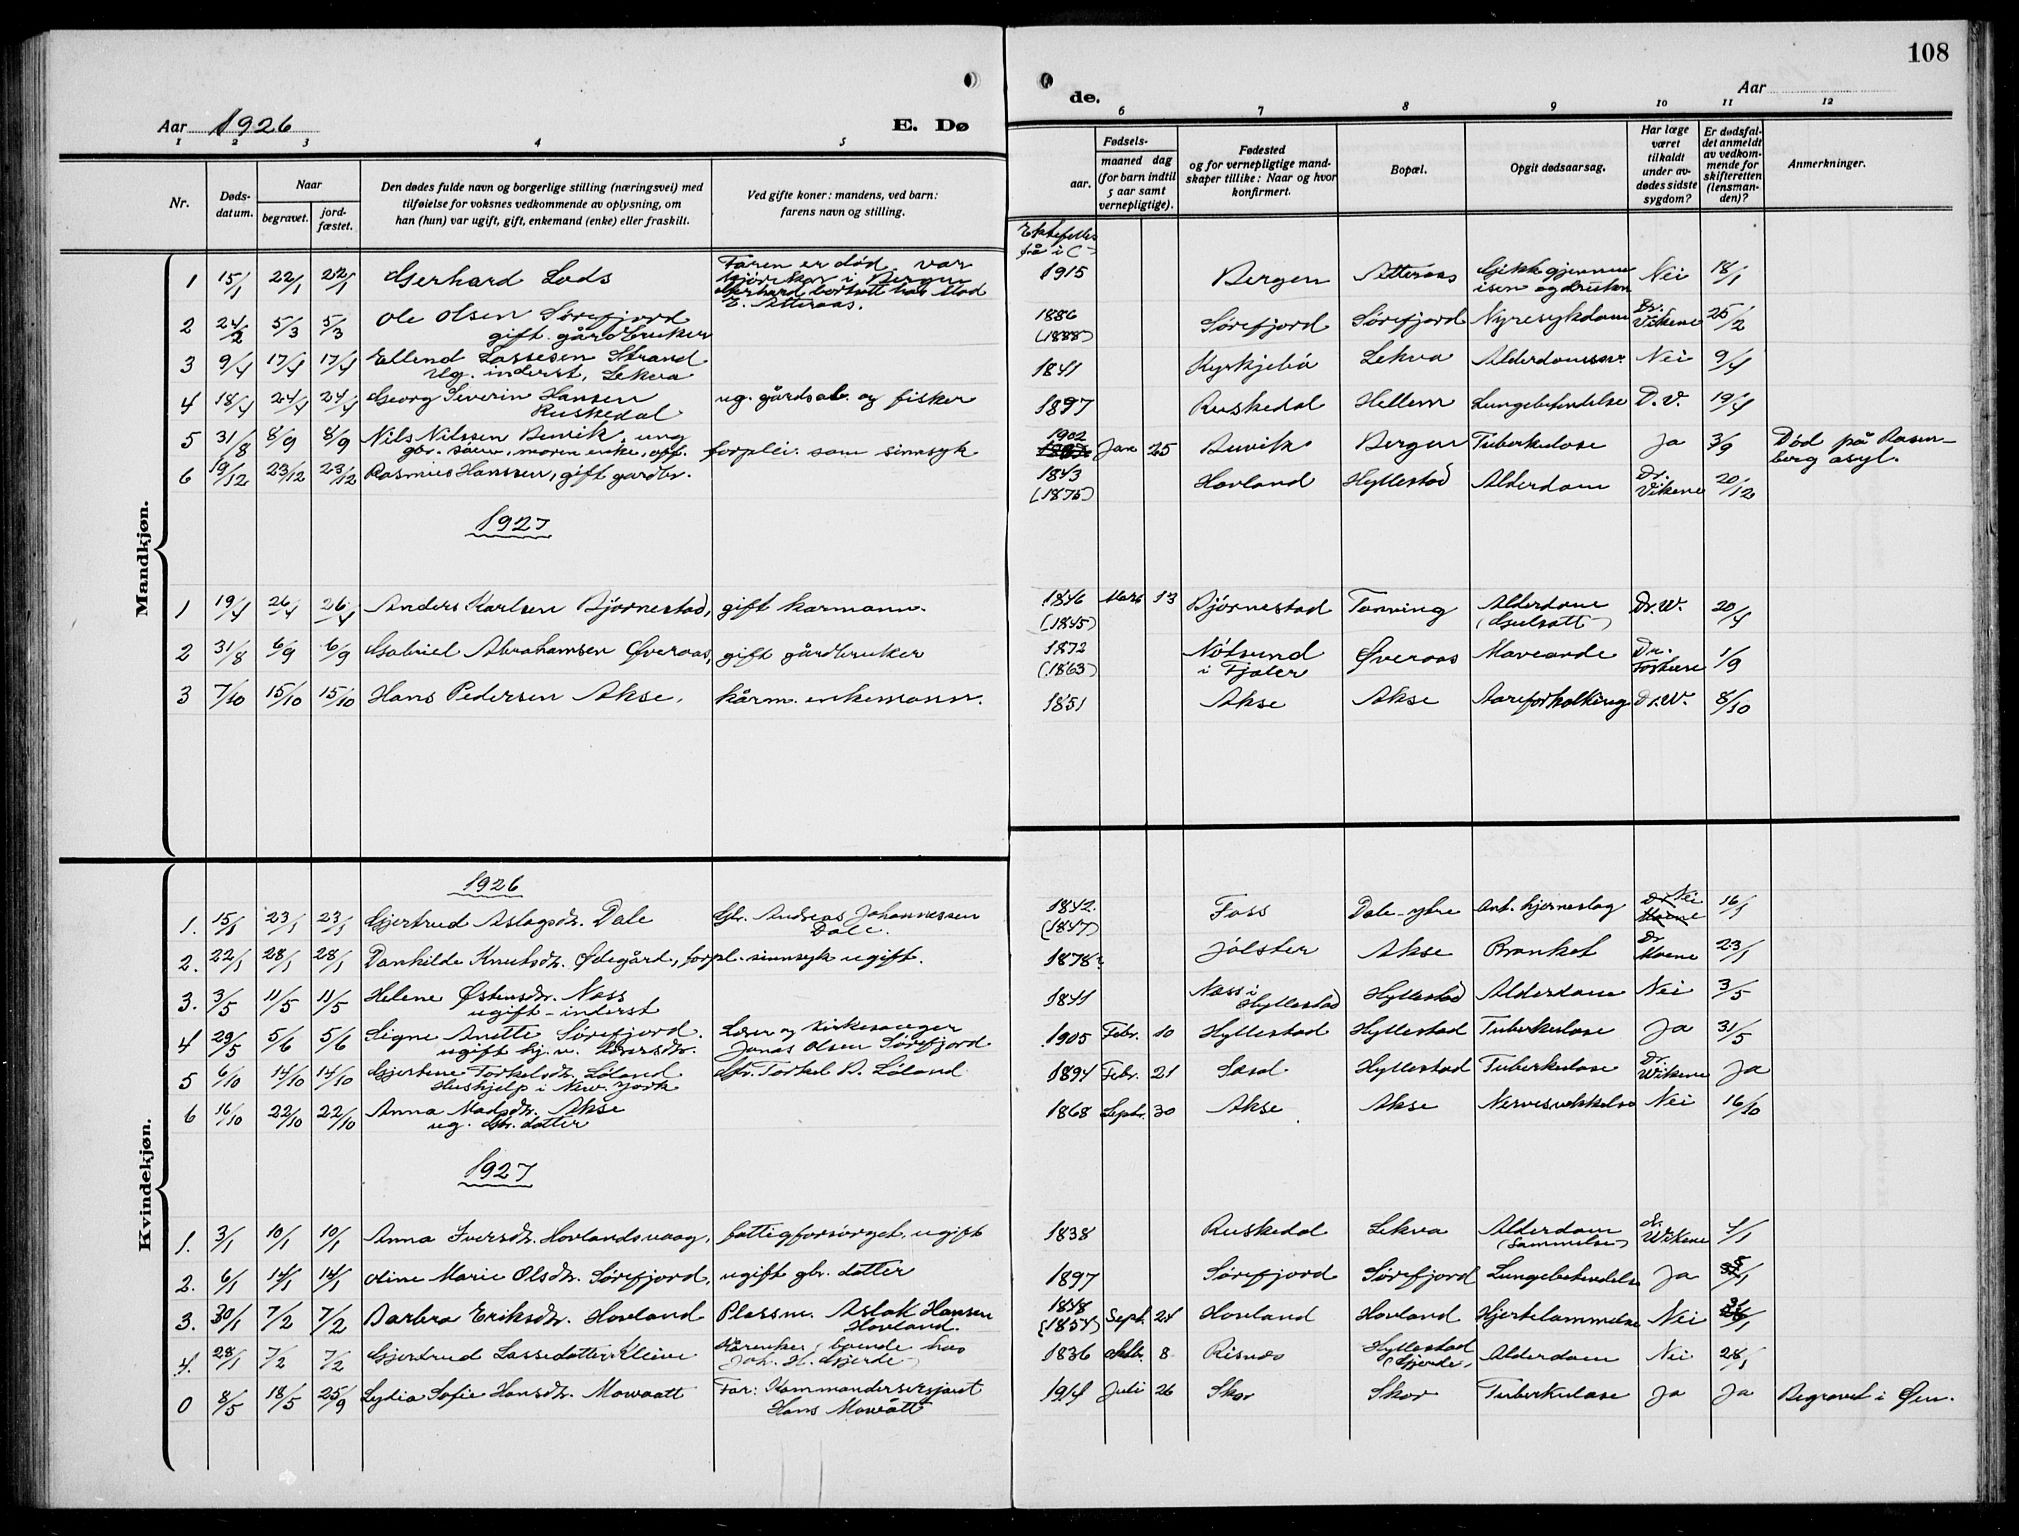 108
Aar 1926
E. Dø
de.
Aar
1 2 3 4 5
6 7 8 9 10 11 12
Nr.
Døds-
datum.
Naar
begravet.
jord-
fæstet.
Den dødes fulde navn og borgerlige stilling (næringsvei) med
tilføielse for voksnes vedkommende av oplysning, om
han (hun) var ugift, gift, enkemand (enke) eller fraskilt.
Ved gifte koner: mandens, ved barn:
farens navn og stilling.
Fødsels-
aar.
maaned dag
(for barn indtil
5 aar samt
vernepligtige).
Fødested
og for vernepligtige mand-
skaper tillike: Naar og hvor
konfirmert.
Bopæl.
Opgit dødsaarsag.
Har læge
været
tilkaldt
under av-
dødes sidste
sygdom?
Er dødsfal-
det anmeldt
av vedkom-
mende for
skifteretten
(lensman-
den)?
Anmerkninger.
Ektefelles
få i ( )
Mandkjøn.
1 15/1 22/1 22/1 Gerhard Lods Faren er død, var
kjørekar i Bergen
Gerhard bortsatt hos Mad
E. Atteraas. 1915 Bergen Atteraas Gikk gjennem
isen og druknet Nei 18/1
2 24/2 5/3 5/3 Ole Olsen Sørefjord
gift gårdbruker 1886
(1888) Sørefjord Sørefjord Nyresykdom Dr.
Vikene 25/2
3 9/4 17/4 17/4 Ellend Lassesen Strand
Ug. inderst, Lekva 1841 Kyrkjebø Lekva Alderdomssv. Nei 9/4
4 18/4 24/4 24/4 Georg Severin Hansen
Ruskedal ug. gårdsarb. og fisker 1897 Ruskedal Hellem Lungebetendelse D.V. 19/4
5 31/8 8/9 8/9 Nils Nilssen Buvik, ung
gbr. sønn, moren enke, off. forplei. som sinnsyk 1902 Jan 25 Buvik Bergen Tuberkulose Ja 3/9 Død på Rosen-
berg asyl.
6 19/12 23/12 23/12 Rasmus Hanssen, gift gardbr. 1843
(1875) Hovland Hyllestad Alderdom Dr.
Vikene 20/12
1927
1 19/4 26/4 26/4 Anders Karlsen Bjørnestad, gift karmann. 1846
(1845) Mars 13 Bjørnestad Tønning Alderdom
(Gulsott) Dr. W. 20/4
2 31/8 6/9 6/9 Gabriel Abrahamsen Øveraas, gift gårdbruker 1872
(1863) Nøtsund
i Fjaler Øveraas Mavesonde Dr. 1/9
3 7/10 15/10 15/10 Hans Pedersen Akse, kårm. enkemann. 1851 Akse Akse Aareforkalking Dr. W. 8/10
Kvindekjøn.
1926
1. 15/1 23/1 23/1 Gjertrud Aslagsdtr. Dale Gbr. Andreas Johannessen
Dale. 1842.
(1847) Foss Dale-ytre Ant. hjerneslag Nei
Dr
Moene 16/1
2. 22/1 28/1 28/1 Dankilde Knutsdtr. Ødegård, forpl. sinnsyk ugift. 1878? Jølster Akse Bronkit Dr
Moene 23/1
3. 3/5 11/5 11/5 Helene Østensdtr. Næss
ugift - inderst 1841 Næss i
Hyllestad Hyllestad Alderdom Nei 3/5
4 29/5 5/6 5/6 Signe Anette Sørefjord.
ugift hj. v. Lærersdtr. Lærer og kirkesanger
Jonas Olsen Sørefjord 1905 Febr. 10 Hyllestad Hyllestad Tuberkulose Ja 31/5
5 6/10 14/10 14/10 Gjertine Torkelsdtr. Løland
Hushjelp i New York Gbr. Torkel A. Løland 1894 Febr. 21 Hyllestad Tuberkulose Dr.
Wikene Ja
6 16/10 22/10 22/10 Anna Madsdtr. Akse
ug. Gbr. datter 1868 Septr. 30 Akse Akse Nervesvekkelse Nei 16/10
1927
1. 3/1 10/1 10/1 Anna Iversdtr. Hovlandsvaag, fattigforsørget, ugift 1838 Ruskedal Lekva Alderdom
(Lammelse) dr.
Wikene 4/1
2. 6/1 14/1 14/1 Oline Marie Olsdtr. Sørefjord, ugift gbr. datter 1897 Sørefjord Sørefjord Lungebetendelse Ja
3. 30/1 7/2 7/2 Barbra Eriksdtr. Hovland Plassm. Aslak Hansen
Hovland. 1848
(1854) Sept. 24 Hovland Hovland Hjertelammelse Nei
4. 28/1 7/2 7/2 Gjertrud Lassedatter Kleive Kårenke, boende hos
Joh. H. Gjerde 1836 Oktb. 8 Risnes Hyllestad
(Gjerde) Alderdom Nei 28/1
0 8/5 18/5 25/9 Lydia Sofie Hansdtr. Mowatt Far: Kommandersersjant
Hans Mowatt 1914 Juli 26 Skor Skor Tuberkulose Ja Ja Begravet i Øen.